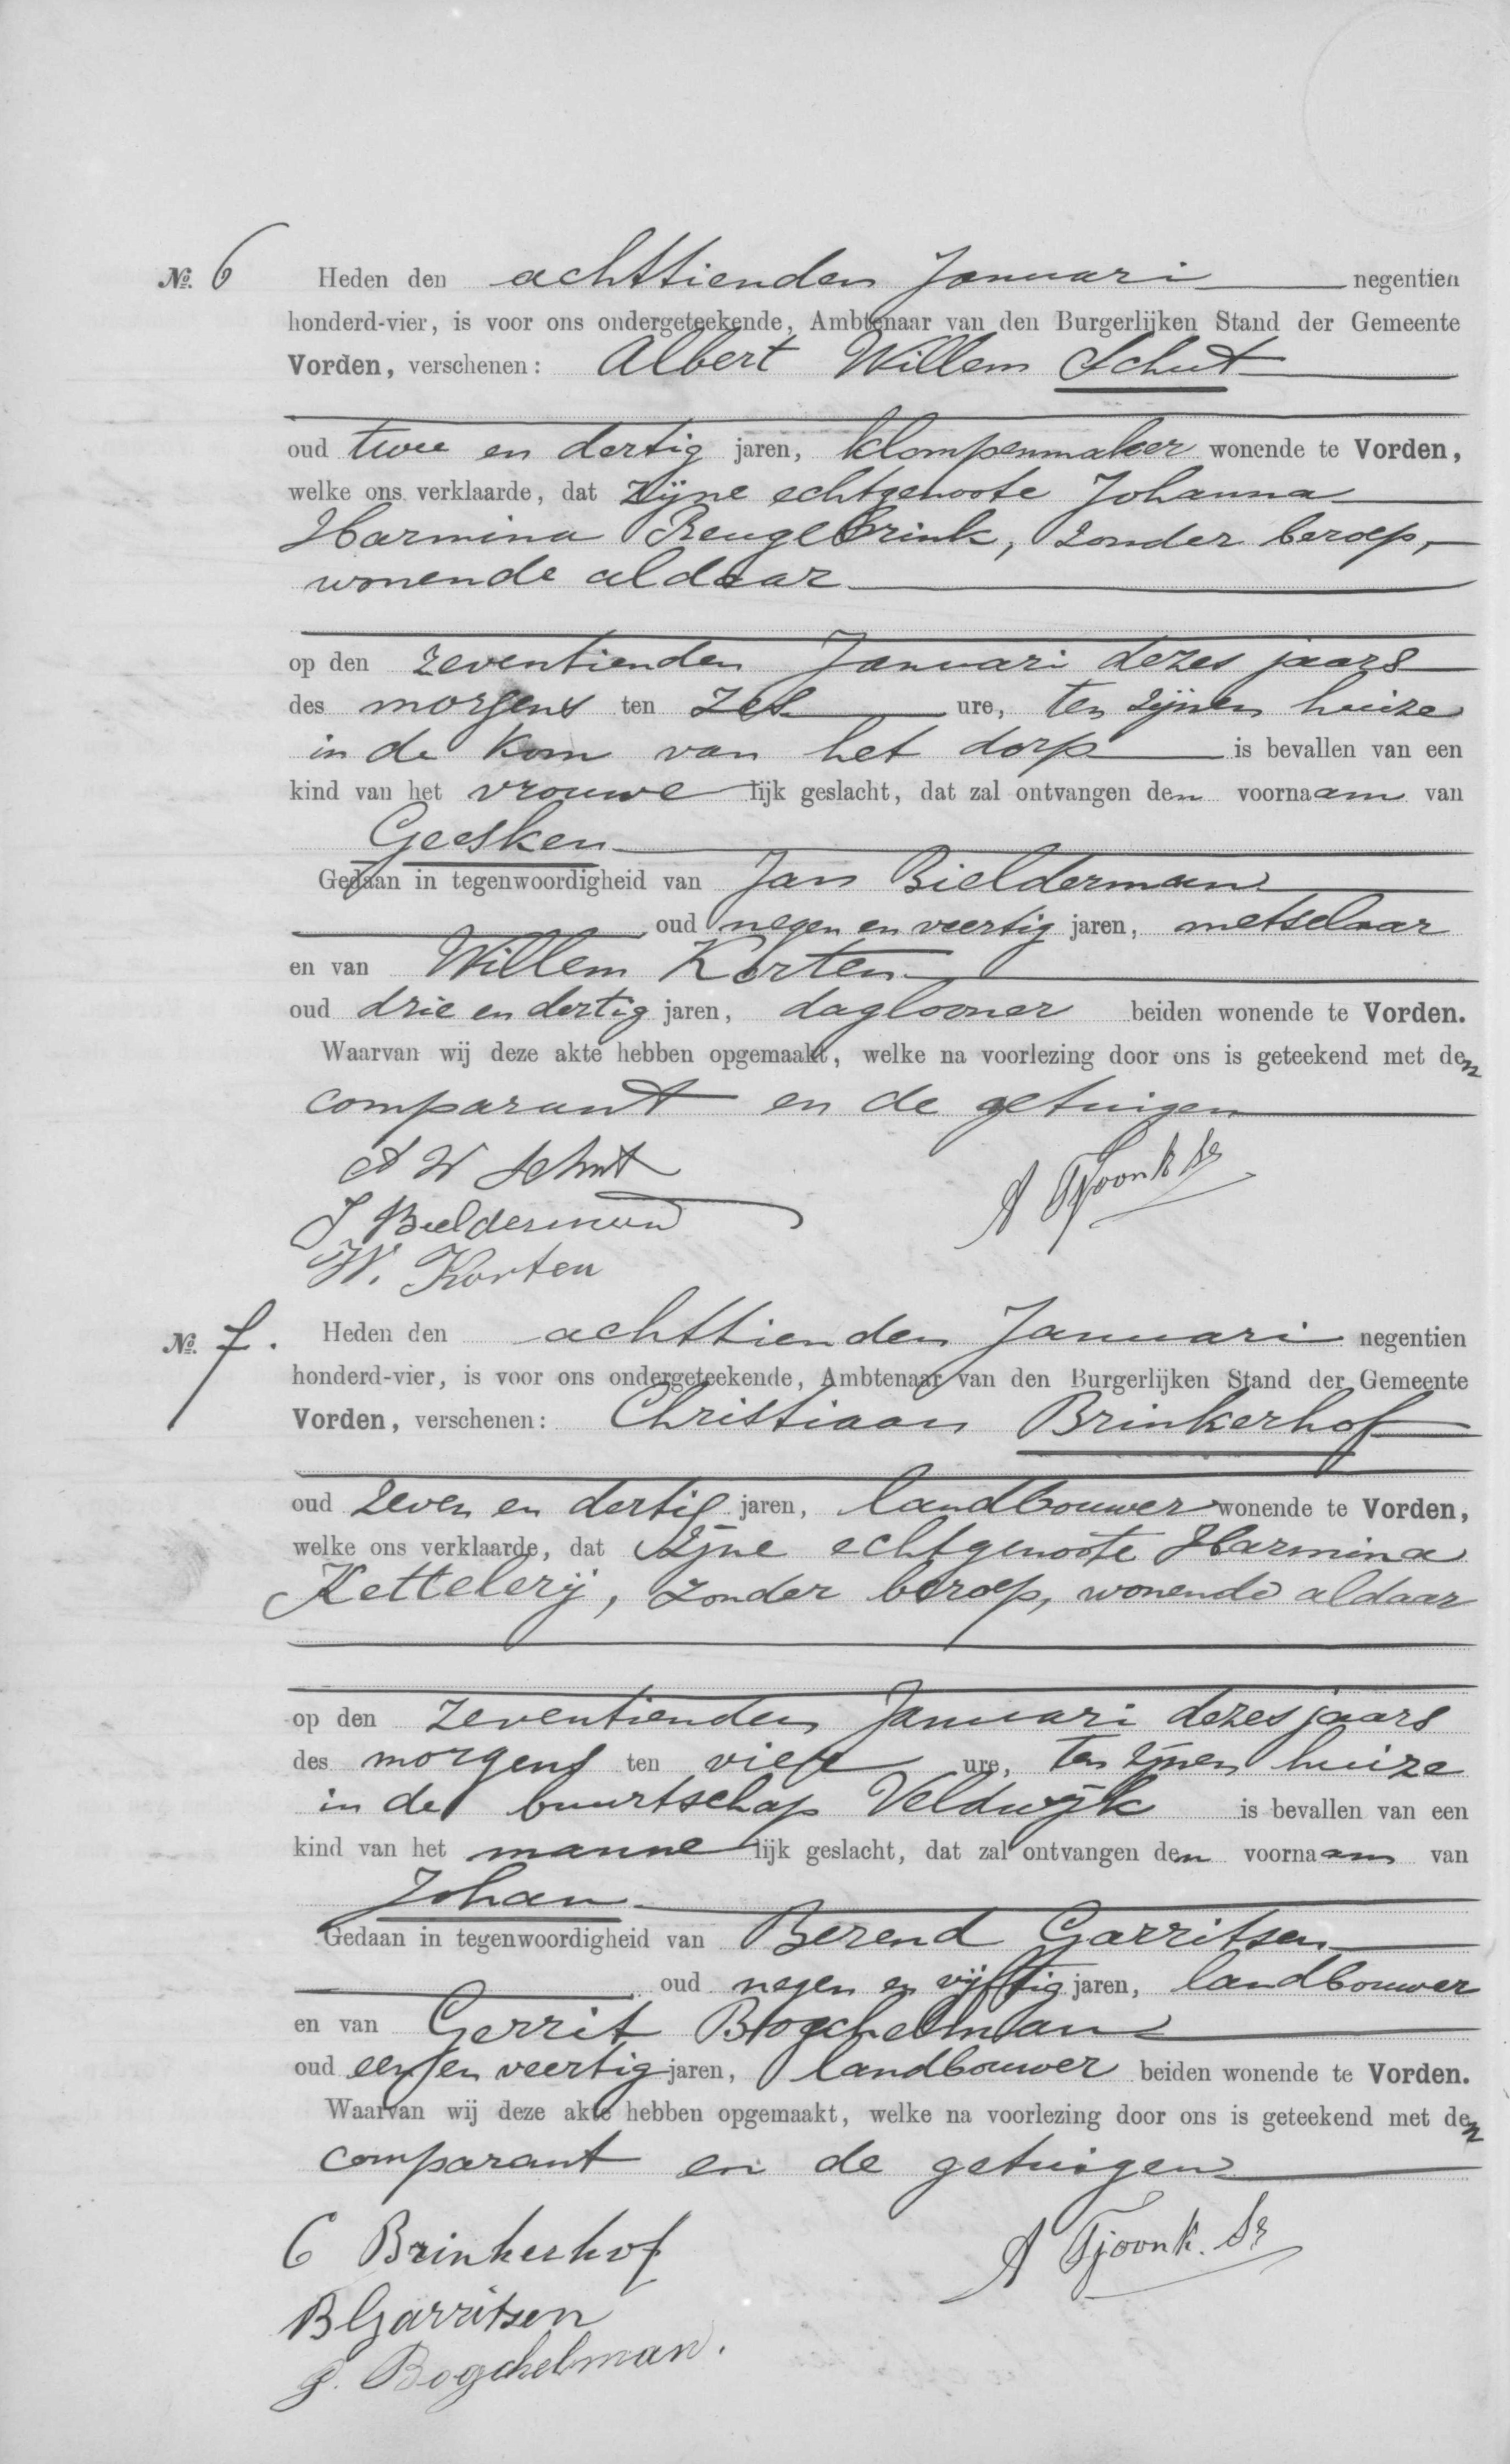 No. 6 Heden den achttienden Januari negentien
honderd-vier, is voor ons ondergeteekende, Ambtenaar van den Burgerlijken Stand der Gemeente
Vorden, verschenen: Albert Willem Schut
oud twee en dertig jaren, klompenmaker wonende te Vorden,
welke ons verklaarde, dat zijne echtgenoote Johanna
Harmina Beugelbrink, zonder beroep,
wonende aldaar
op den zeventienden Januari dezes jaars
des morgens ten zes ure, ten zijnen huize
in de kom van het dorp is bevallen van een
kind van het vrouwelijk geslacht, dat zal ontvangen den voornaam van
Geesken
Gedaan in tegenwoordigheid van Jan Bielderman
oud negen en veertig jaren, metselaar
en van Willem Korten
oud drie en dertig jaren, daglooner beiden wonende te Vorden.
Waarvan wij deze akte hebben opgemaakt, welke na voorlezing door ons is geteekend met den
comparant en de getuigen
A W Schut
A Tjoonk Sr
J Bielderman
W. Korten
No. 7. Heden den achttienden Januari negentien
honderd-vier, is voor ons ondergeteekende, Ambtenaar van den Burgerlijken Stand der Gemeente
Vorden, verschenen: Christiaan Brinkerhof
oud zeven en dertig jaren, landbouwer wonende te Vorden,
welke ons verklaarde, dat zijne echtgenoote Harmina
Kettelerij, zonder beroep, wonende aldaar
op den zeventienden Januari dezes jaars
des morgens ten vier ure, ten zijnen huize
in de buurtschap Veldwijk is bevallen van een
kind van het mannelijk geslacht, dat zal ontvangen den voornaam van
Johan
Gedaan in tegenwoordigheid van Berend Garritsen
oud negen en vijftig jaren, landbouwer
en van Gerrit Bogchelman
oud een en veertig jaren, landbouwer beiden wonende te Vorden.
Waarvan wij deze akte hebben opgemaakt, welke na voorlezing door ons is geteekend met den
comparant en de getuigen
C Brinkerhof
A Tjoonk. Sr
B Garritsen
G. Bogchelman.